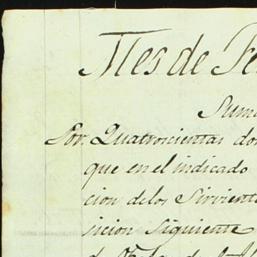 Mes de Fe
Suma
Por Quatrocientas do
que en el indicado
cion de los Sirvient
sicion siguiente